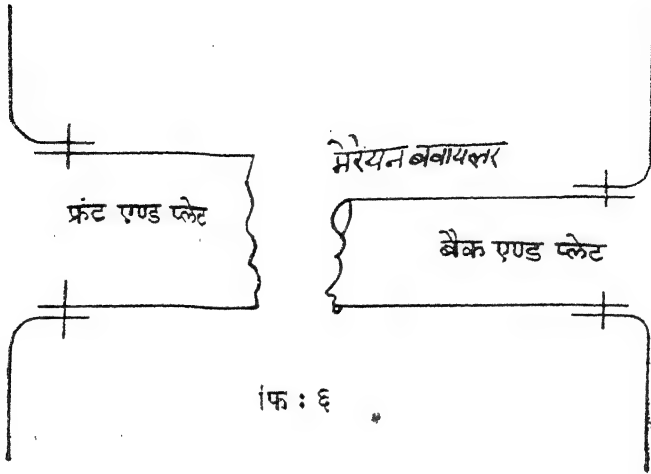 मेरेयन बवायलर
फ्रंट एण्ड प्लेट
बैक एण्ड प्लेट
फि : ६